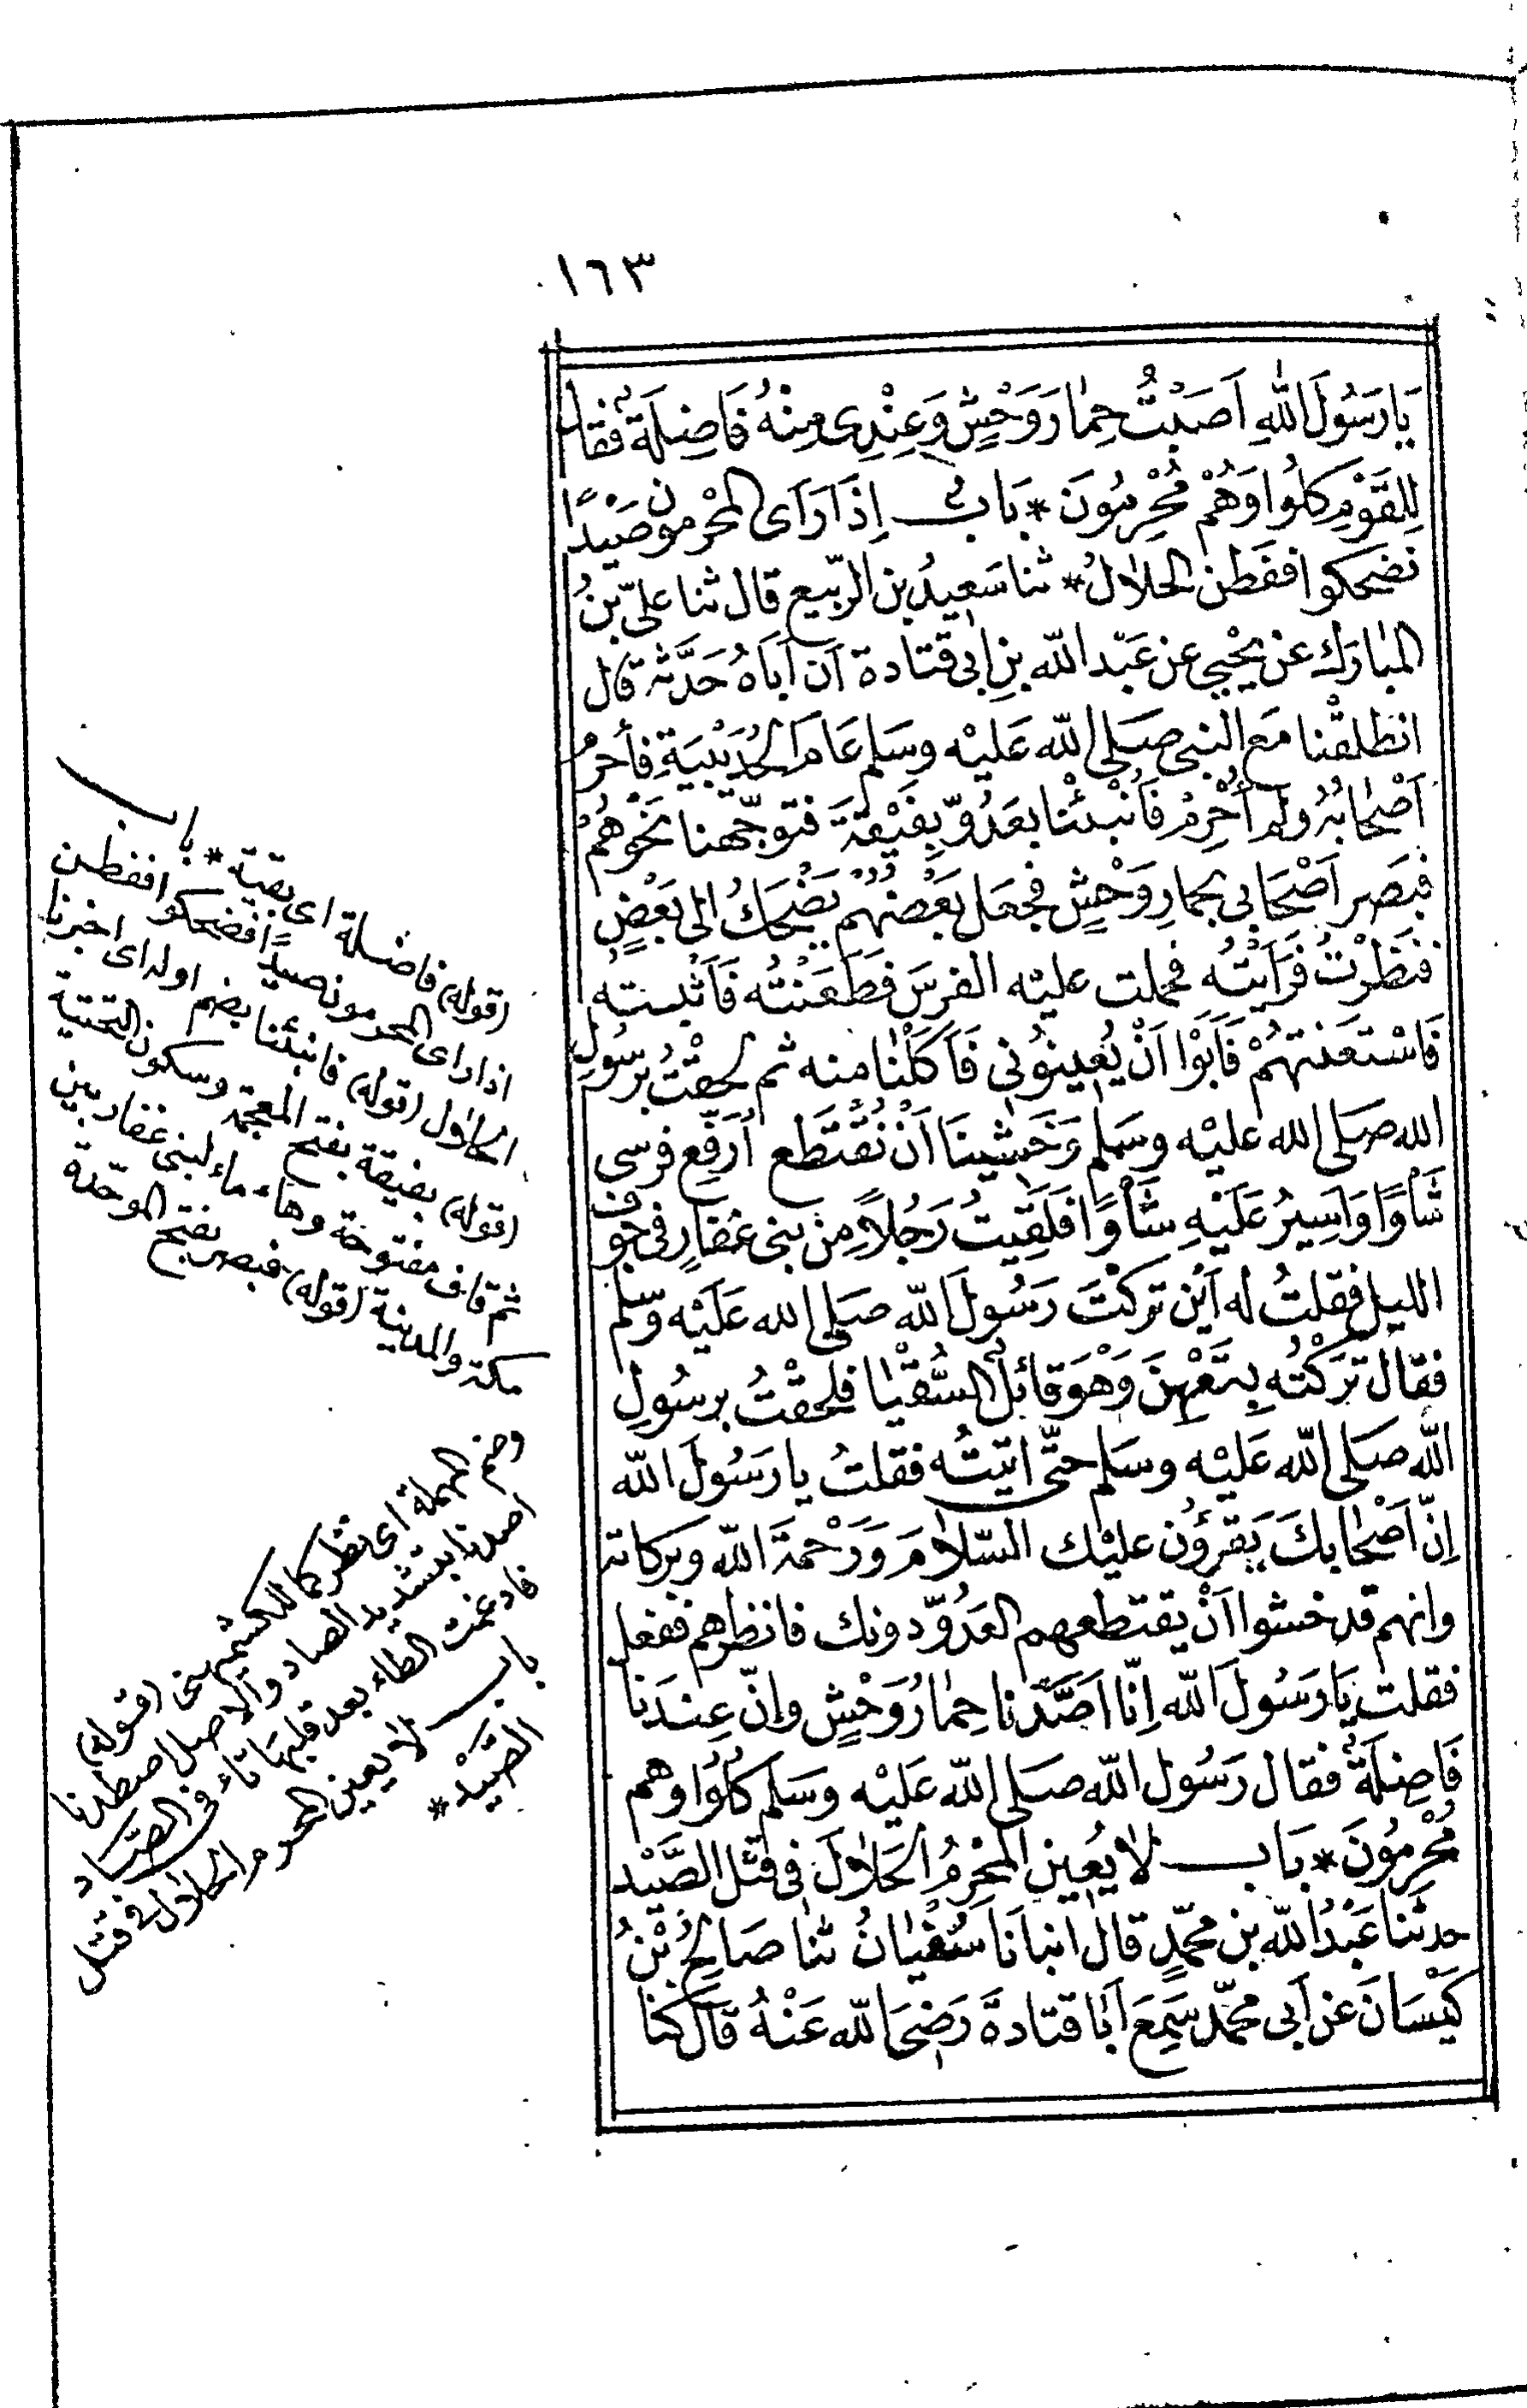 ١٦٣
يَا رَسُولَ اللهِ اَصَبْتُ حِمَارَ وَحْشٍ وَعِنْدِى مِنْهُ فَاضِلَةٌ فقال
لِلْقَوْمِ كُلُوا وَهُمْ مُحْرِمُونَ * بَابٌ اِذَا رَاَى المحْرِمون صَيْدًا
فضحكوا ففَطِن الحلالُ * ثنا سَعِيدُ بن الرّبيع قال ثنا علىّ بنُ
المبارك عن يَحْيى عن عَبْد اللّه بنِ ابى قتادة اَن اَبَاهُ حَدَّثه قال
انطلقْنا مَعَ النبى صَلى اللّه عَليْه وسَلم عَامَ الحُدَيْبِيَةِ فأحرمَ
اَصْحَابُهُ ولم اُحْرِمْ فَاُنْبِئْنا بعَدُوٍّ بِغَيْقَةَ فتوجّهنا نَحْوَهُمْ
فبَصَر اَصْحَابى بحمارِ وَحْشٍ فجعَل بَعْضُهُمْ يَضْحَكُ الى بَعْضٍ
فنظَرْتُ فَرَاَيْتُه فحملت عليْه الفرسَ فطَعَنْتُه فَاَثْبتته
فَاسْتَعَنتهُمْ فَاَبَوْا اَنْ يُعِينُونى فَاَكَلْنَا منه ثم لحِقْتُ برسُولِ
الله صَلى الله عليْه وسَلم وَخَشِينَا اَنْ نُقْتَطَع اَرفع فرسى
شَأوًا وَاَسِيرُ عَلَيْهِ شَأوًا فلَقِيتُ رَجُلاً مِنْ بنى غِفَارٍ فى جوف
الليل فقلتُ له اَيْن تركْتَ رَسُولَ اللّه صَلى الله عَلَيْه وسَلم
فقال تَرَكْتُه بِتَعْهِنَ وَهْوَ قائلٌ السُّقْيا فلحقْتُ برسُولِ
اللّه صَلى اللّه عَليْه وسَلم حتّى اتيتُه فقلتُ يا رَسُولَ اللّه
اِنّ اَصْحَابكَ يَقرؤن عليْك السّلَامَ وَرَحْمةَ اللّه وبَركاته
وانهم قد خشوا اَنْ يقتطعهم العَدُوّ دونك فانظرهم ففعل
فقلت يَا رَسُولَ اللّه اِنّا اصَّدْنا حِمَارَ وَحْشٍ وانّ عِندَنا
فَاضِلَةٌ فقال رَسُول اللّه صَلى اللّه عَليْه وسَلم كُلُوا وهم
مُحْرِمُونَ * بَاب لا يُعِين المحْرِمُ الحَلَالَ فى قَتْل الصَّيْد
حدثنا عَبْدُ اللّه بن محمّدٍ قال انبانَا سُفْيَانُ ثنا صَالِحُ بْنُ
كَيْسَانَ عن اَبى محمّد سَمِعَ اَبا قتادةَ رَضىَ اللّه عَنْهُ قال كنا
(قوله) فاضلة اى بقية * باب
اذا راى المحرمون صيدًا فضحكوا ففطن
الحلال (قوله) فانبئنا بضم اوله اى اخبرنا
(قوله) بغيقة بفتح المعجمة وسكون التحتية
ثم قاف مفتوحة وهاء ماء لبنى غفار بين
مكة والمدينة (قوله) فبصر بفتح الموحّدة
وضم المهملة اى نظر كما للكشميهنى (قوله)
اصدنا بتشديد الصاد والاصل اصطدنا
فادغمت الطاء بعد قلبها تاء فى الصَّاد
باب لا يعين المحرم الحلال فى قتل
الصَّيْد *